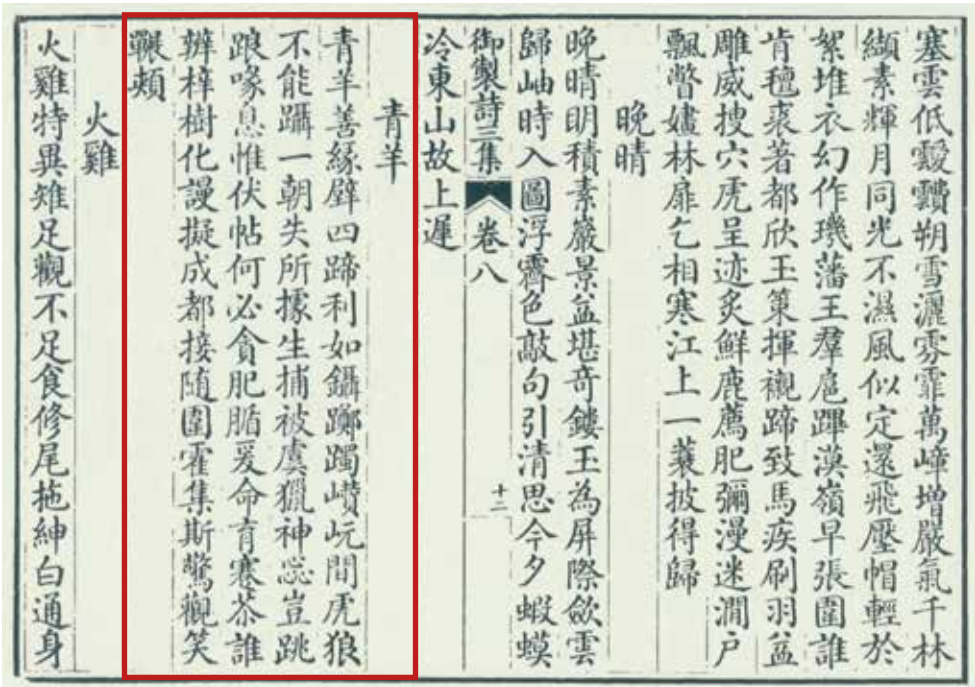 塞雲低靉靆朔雪灑雰霏萬嶂增嚴氣千林
纈素輝月同光不濕風似定還飛壓帽輕於
絮堆衣幻作璣藩王羣扈蹕漠嶺早張圍誰
肯氊裘著都欣玉策揮襯蹄致馬疾刷羽益
雕威搜穴虎呈迹炙鮮鹿薦肥彌漫迷澗戶
飄瞥嫿林扉乞相寒江上一蓑披得歸
晚晴
晚晴明積素巖景益堪奇鏤玉為屏際歛雲
歸岫時入圖浮霽色敲句引清思今夕蝦蟆
御製詩三集 卷八 十二
冷東山故上遲
青羊
青羊善緣壁四蹄利如鑷躑躅巑岏間虎狼
不能躡一朝失所據生捕被虞獵神惢豈跳
踉喙息惟伏帖何必貪肥腯爰命育塞苶誰
辨梓樹化謾擬成都接隨圍霍集斯驚觀笑
䩄頰
火雞
火雞特異雉足觀不足食修尾拖紳白通身